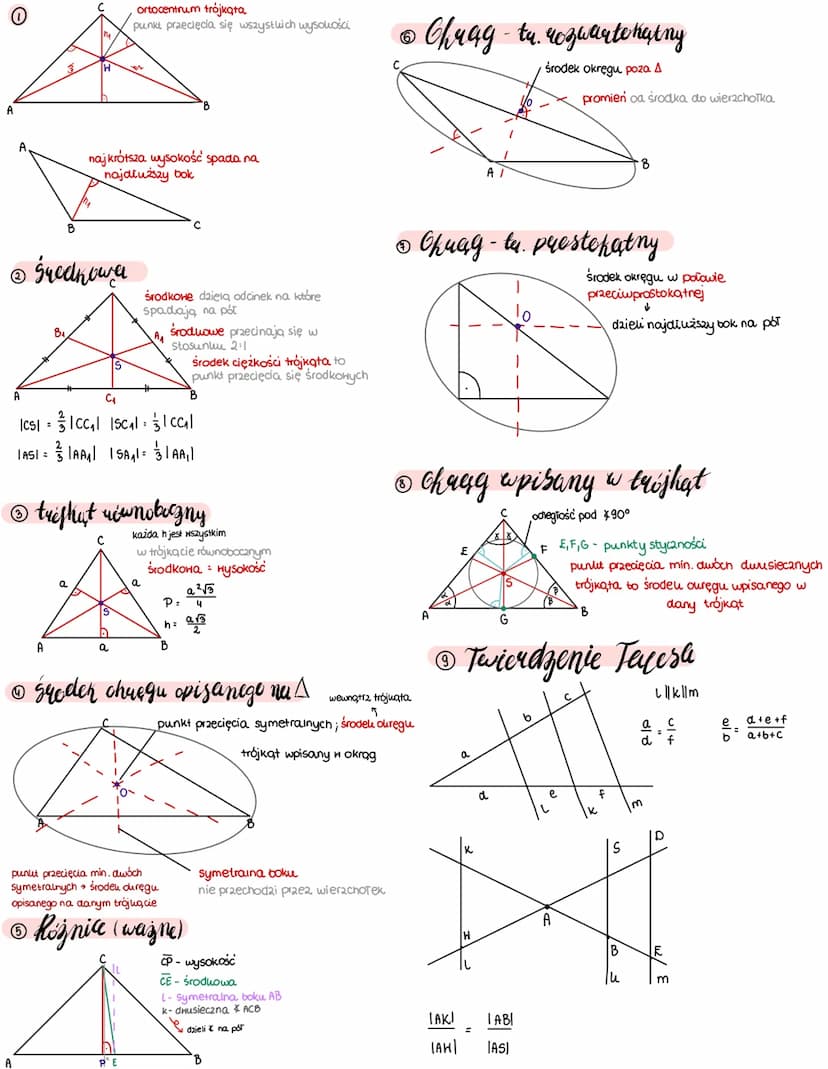 ①
C
ortocentrum trójkąta
punkt przecięcia się wszystkich wysokości
h₁
W
h₃
h₂
A
B
A
najkrótsza wysokość spada na
najdłuższy bok
h₁
B
C
② środkowa
C
środkowe dzielą odcinek na które
spadają na pół
B₁
A₁
środkowe przecinają się w
stosunku 2:1
S
środek ciężkości trójkąta to
punkt przecięcia się środkowych
A
C₁
B
|CS| = 2/3 |CC₁| |SC₁| = 1/3 |CC₁|
|AS| = 2/3 |AA₁| |SA₁| = 1/3 |AA₁|
③ trójkąt równoboczny
C
każda h jest wszystkim
w trójkącie równobocznym
środkowa = wysokość
a
a
P = a²√3/4
S
h = a√3/2
A
a
B
④ środek okręgu opisanego na △
wewnątrz trójkąta
C
punkt przecięcia symetralnych ; środek okręgu
trójkąt wpisany w okrąg
O
A
B
punkt przecięcia min. dwóch
symetralnych → środek okręgu
opisanego na danym trójkącie
symetralna boku
nie przechodzi przez wierzchołek
⑤ Różnice (ważne)
C
l
CP - wysokość
CE - środkowa
l - symetralna boku AB
k - dwusieczna ∢ ACB
dzieli ∢ na pół
A
P E
B
⑥ Okrąg - tr. rozwartokątny
C
środek okręgu poza △
O
promień od środka do wierzchołka
A
B
⑦ Okrąg - tr. prostokątny
środek okręgu w połowie
przeciwprostokątnej
↓
dzieli najdłuższy bok na pół
O
⑧ okrąg wpisany w trójkąt
C
odległość pod ∢90°
E
F
E,F,G - punkty styczności
punkt przecięcia min. dwóch dwusiecznych
S
trójkąta to środek okręgu wpisanego w
dany trójkąt
α
α
β
β
A
G
B
⑨ Twierdzenie Talesa
l || k || m
c
b
a
a/d = c/f
e/b = d+e+f/a+b+c
d
e
f
l
k
m
K
S
D
A
H
B
E
l
k
m
|AK|/|AH| = |AB|/|AS|